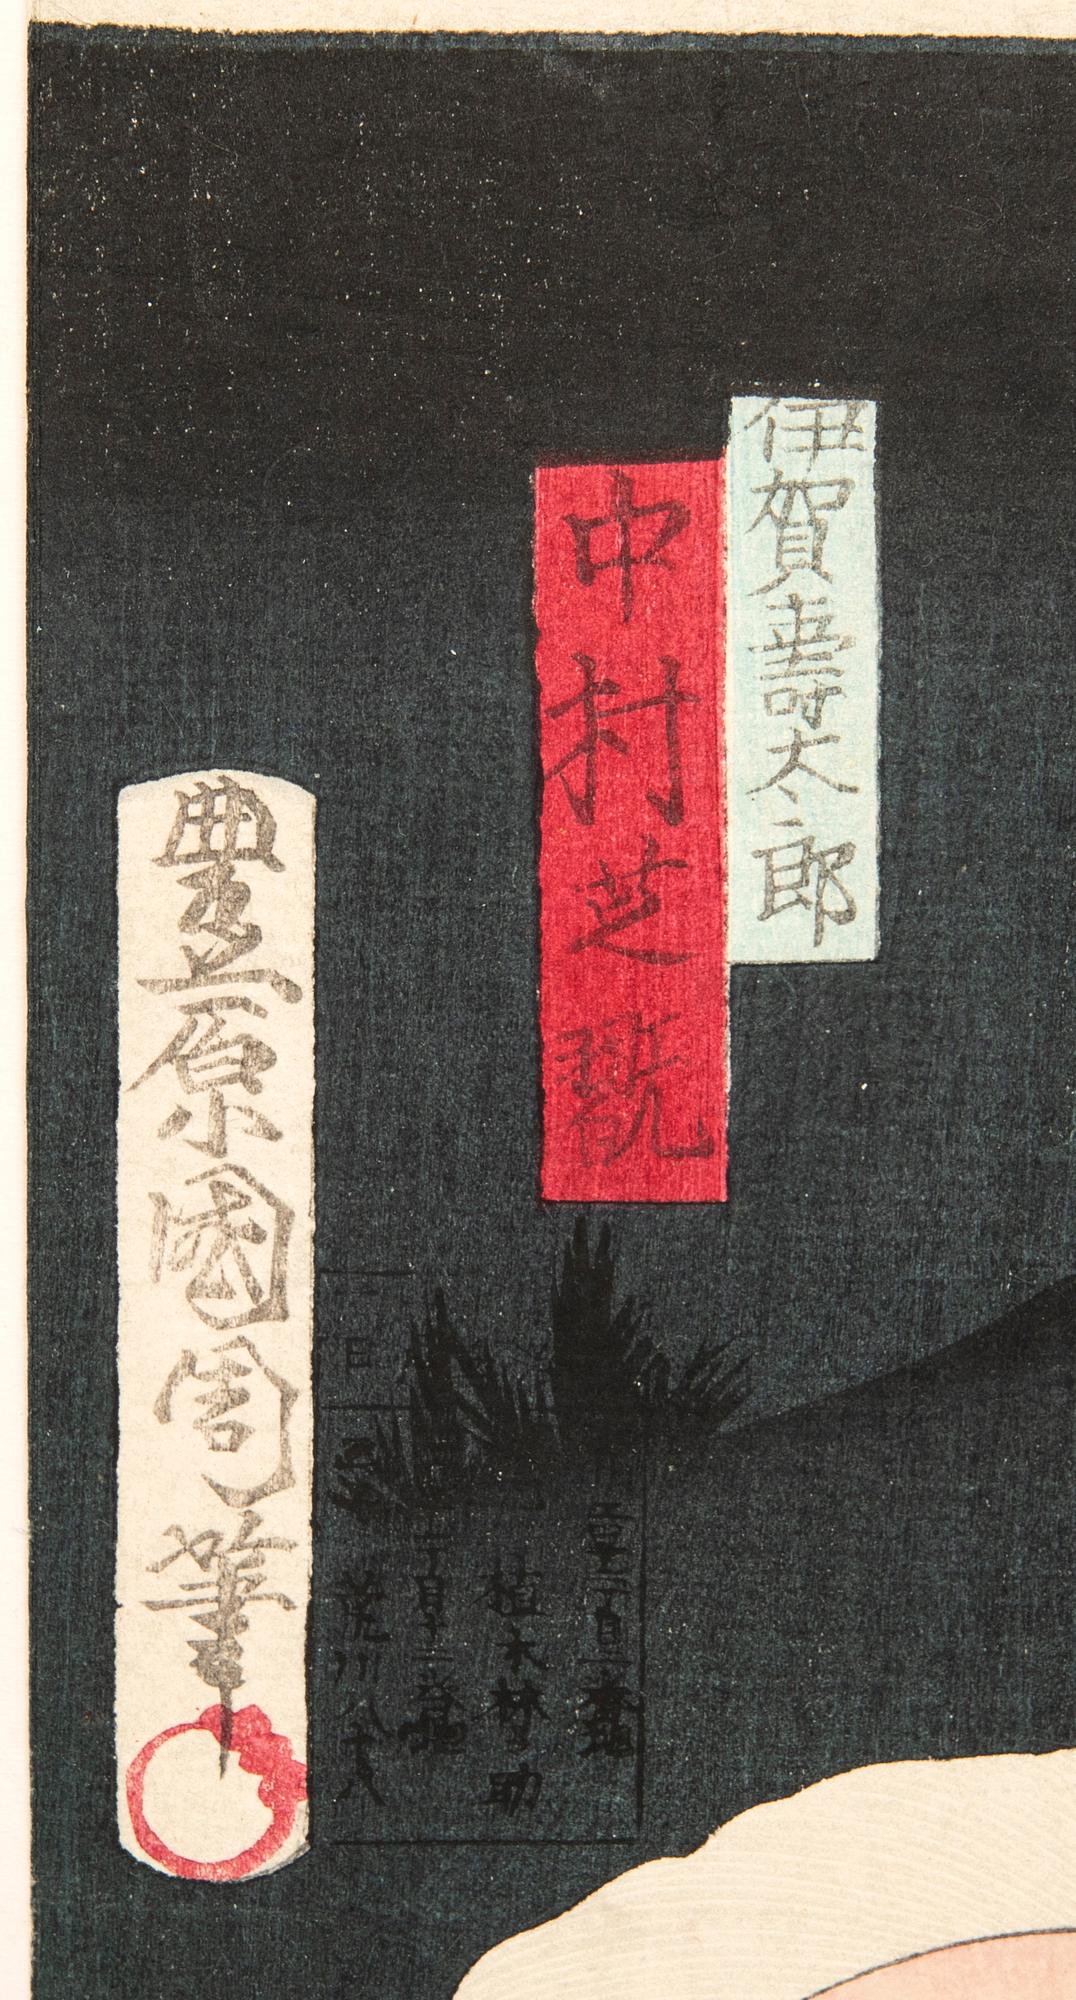 伊賀壽太郎
中村芝翫
豊原國周筆
植木林之助
荒川八十八